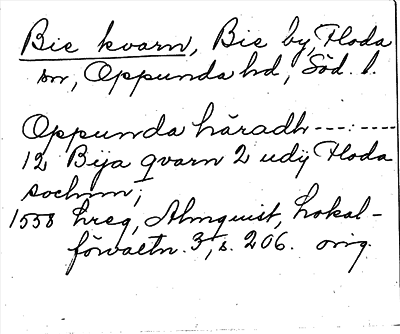 Bie kvarn, Bie by, Floda
sn, Oppunda hd, Söd. l.
Oppunda häradh --- : ---
12 Bija qvarn 2 udij Floda
sochnn;
1558 hreg, Almquist, Lokal-
förvaltn. 3, s. 206. orig.